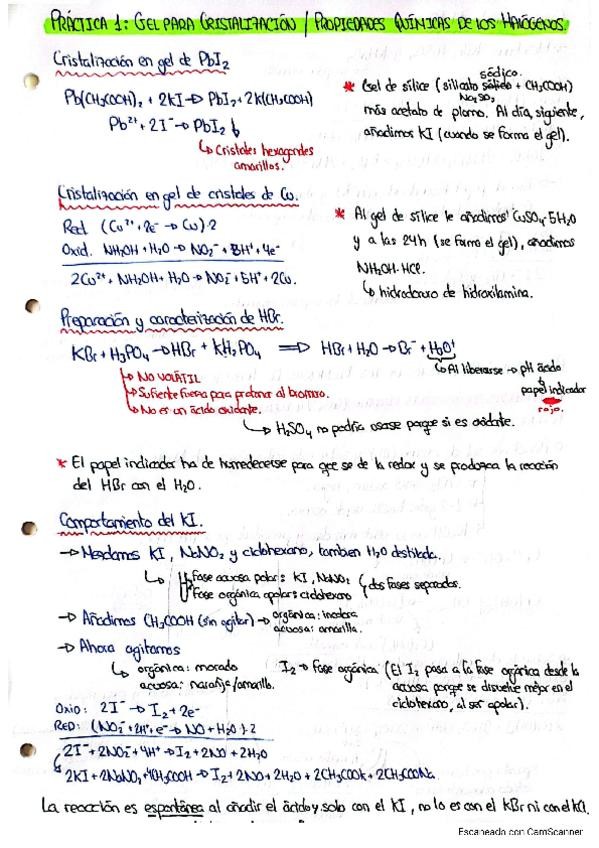 PRÁCTICA 1: GEL PARA CRISTALIZACIÓN / PROPIEDADES QUÍMICAS DE LOS HALÓGENOS.
Cristalización en gel de PbI₂
Pb(CH₃COOH)₂ + 2KI → PbI₂ + 2K(CH₃COOH)
Pb²⁺ + 2I⁻ → PbI₂ ↓
↳ Cristales hexagonales
amarillos.
* Gel de sílice (silicato sódico + CH₃COOH)
Na₂SO₃
más acetato de plomo. Al día, siguiente,
añadimos KI (cuando se forma el gel).
Cristalización en gel de cristales de Cu.
Red (Cu²⁺ + 2e⁻ → Cu)·2
Oxid. NH₂OH + H₂O → NO₂⁻ + 5H⁺ + 4e⁻
2Cu²⁺ + NH₂OH + H₂O → NO₂⁻ + 5H⁺ + 2Cu.
* Al gel de sílice le añadimos CuSO₄·5H₂O
y a las 24h (se forma el gel), añadimos
NH₂OH·HCl.
↳ hidrocloruro de hidroxilamina.
Preparación y caracterización de HBr.
KBr + H₃PO₄ → HBr + KH₂PO₄ ⇒ HBr + H₂O → Br⁻ + H₃O⁺
↳ Al liberarse → pH ácido
papel indicador
rojo.
↳ NO VOLÁTIL
↳ Sufiente fuerza para protonar al bromuro.
↳ No es un ácido oxidante.
↳ H₂SO₄ no podría usarse porque si es oxidante.
* El papel indicador ha de humedecerse para que se de la redox y se produzca la reacción
del HBr con el H₂O.
Comportamiento del KI.
→ Mezclamos KI, NaNO₂ y ciclohexano, tambien H₂O destilada.
↳ Fase acuosa polar: KI, NaNO₂
Fase orgánica apolar: ciclohexano
dos fases separadas.
→ Añadimos CH₃COOH (sin agitar) → orgánica: incolora
acuosa: amarilla.
→ Ahora agitamos
↳ orgánica: morado
acuosa: naranja/amarillo.
I₂ → Fase orgánica (El I₂ pasa a la fase orgánica desde la
acuosa porque se disuelve mejor en el
ciclohexano, al ser apolar).
OXID: 2I⁻ → I₂ + 2e⁻
RED: (NO₂⁻ + 2H⁺ + e⁻ → NO + H₂O)·2
2I⁻ + 2NO₂⁻ + 4H⁺ → I₂ + 2NO + 2H₂O
2KI + 2NaNO₂ + 4CH₃COOH → I₂ + 2NO + 2H₂O + 2CH₃COOK + 2CH₃COONa.
La reacción es espontánea al añadir el ácido y solo con el KI, no lo es con el KBr ni con el KCl.
Escaneado con CamScanner